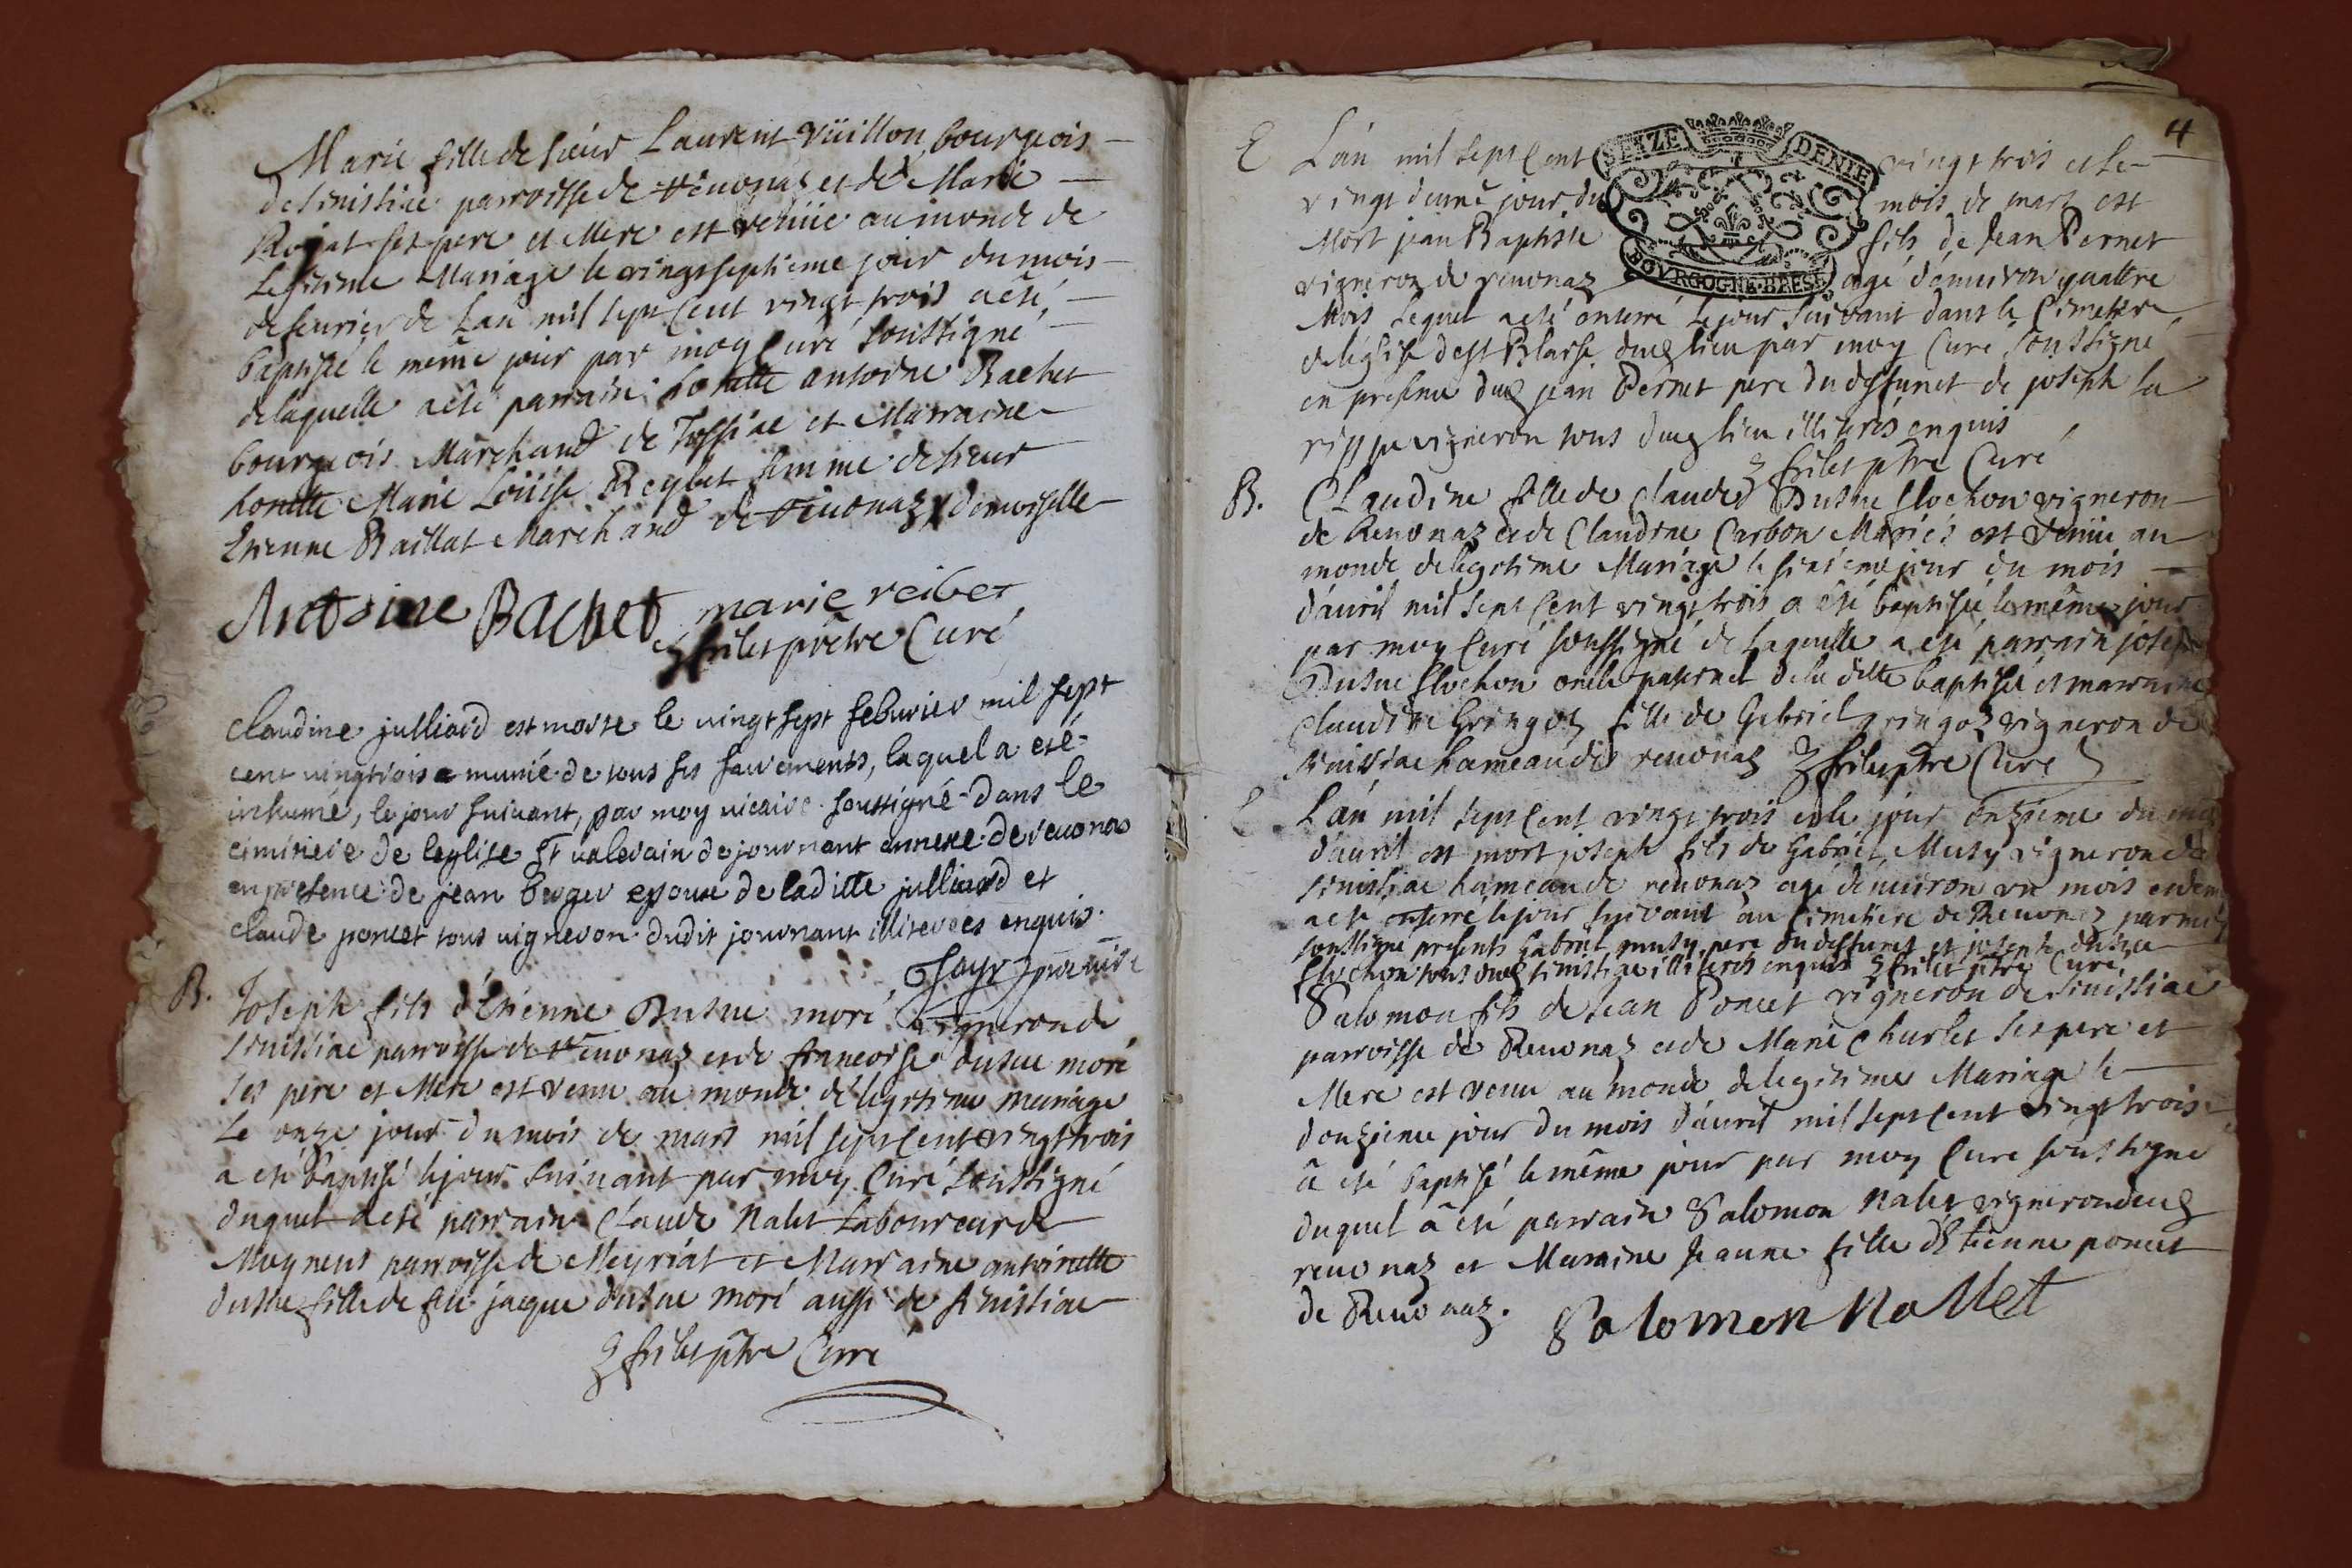 Marie fille de sieur Laurent vüillon, bourgeois
de sinissiac parroisse de reuonas et de Marie
Rojat ses pere et Mere est venüe au monde de
Legitime Mariage le vingtseptieme jour du mois
de feurier de L'an mil sept Cent vingt trois a eté
baptisée le même jour par moy Curé soussigné
delaquelle a eté parrain honette antoine Bachet
bourgeois Marchand de et Marraine
honette Marie Loüise Reybet femme de sieur
Etienne Baillat Marchand de reuonaz demoiselle
Antoine Bachet marie reibet
frilet prêtre Curé
claudine julliard est morte le vingt sept feburier mil sept
cent vingtrois munie de tous ses sacrements, laquel a eté
inhumé, le jour suivant, par moy vicaire soussigné dans le
cimitiere de leglise St valerain de journant annexe de reuonas
en presence de jean berger epoux de laditte julliard et
claude poncet tous vigneron dudit journant illiterees enquis.
B. Joseph fils d'Etienne Dusue moré vigneron de
sinissiac parroisse de reuonaz et de francoise dusue moré
ses pere et Mere est venu au monde de legitime mariage
Le onze jour du mois de mars mil sept Cent vingt trois
a eté baptisé le jour suiuant par moy Curé soussigné
duquel a eté parrain Claude Nalet Laboureur de
Mogneux parroisse de Meyriat et Marraine antoinette
dusue fille de feu jaque dusue moré aussi de sinissiac
frilet ptre Curé
4
SEYZE DENIE
BOVRGOGNE·BRESSE
E L'an mil sept Cent vingt trois et le
vingt jour du mois de mars est
Mort jean Baptiste fils de Jean Pernet
vigneron de reuonaz agé d'enuiron quattre
Mois Lequel a eté enterré le jour suivant dans le Cimetiere
de léglise de st Blaise dud lieu par moy Curé soussigné
en presence dud jean Pernet pere du deffunct de joseph la
vigneron tous dud lieu illiterés enquis
frilet ptre Curé
B. Claudine fille de Claude Dusue flochon vigneron
de Reuonaz et de Claudine Carbon Mariés est venüe au
monde de legitime Mariage le jour du mois
d'auril mil sept Cent vingt trois a eté baptisée le même jour
par moy Curé soussigné de Laquelle a eté parrain joseph
Dusue flochon oncle paternel de la ditte baptisée et marraine
Claudine Gringoz fille de Gabriel gringoz vigneron de
sinissiac hameau de reuonaz frilet ptre Curé
E L'an mil sept Cent vingt trois et le jour onzieme du mois
d'auril est mort joseph fils de Gabriel Musy vigneron de
sinissiac hameau de reuonaz agé denuiron un mois
a eté enterré le jour suivant au Cimetiere de Reuonaz par moy
soussigné presents Gabriel musy pere du deffunct et joseph dusue
flochon tous dud sinissiac illiterés enquis frilet ptre Curé
Salomon fils de Jean Poncet vigneron de sinissiac
parroisse de Reuonaz et de Marie Charlet ses pere et
Mere est venu au monde de legitime Mariage le
douzieme jour du mois d'auril mil sept Cent vingt trois
a eté baptisé le même jour par moy Curé soussigné
duquel a eté parrain Salomon Nalet vigneron dud
reuonaz et Maraine Jeanne fille d'Etienne poncet
de Reuonaz. Salomon Nallet